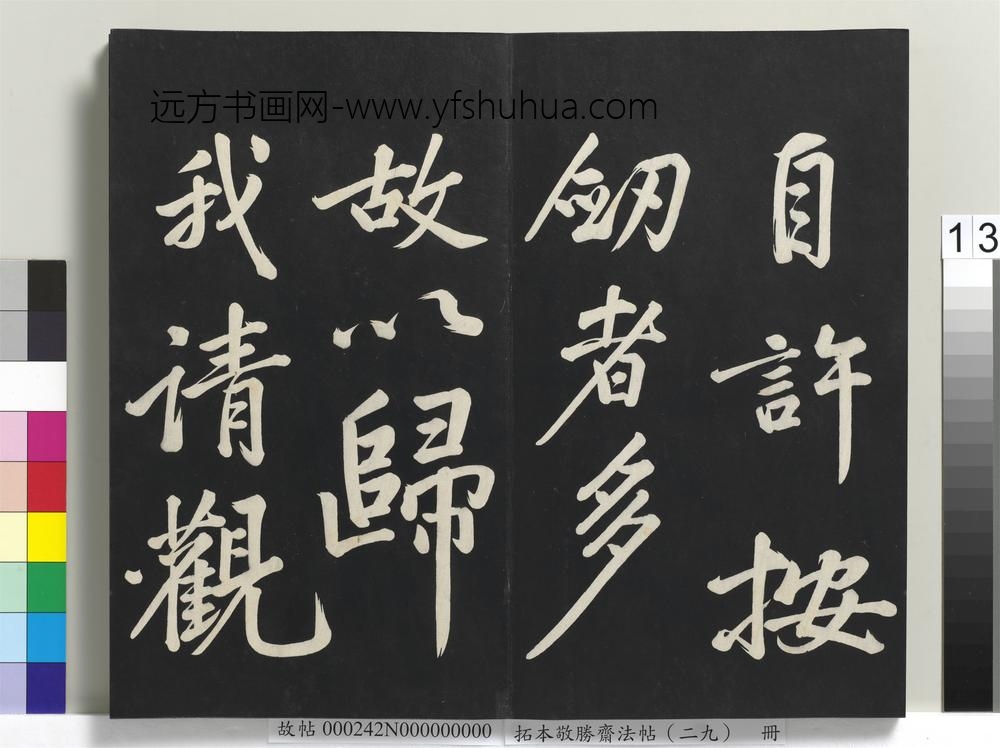 远方书画网-www.yfshuhua.com
自許按
劒者多
故以歸
我请觀
13
故帖 000242N000000000
拓本敬勝齋法帖（二九） 冊